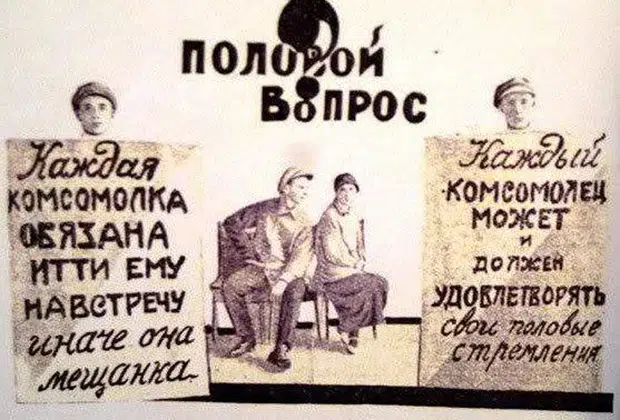 ПОЛОВОЙ
ВОПРОС
Каждая
КОМСОМОЛКА
ОБЯЗАНА
ИТТИ ЕМУ
НАВСТРЕЧУ
иначе она
мещанка.
Каждый
КОМСОМОЛЕЦ
МОЖЕТ
и
ДОЛЖЕН
УДОВЛЕТВОРЯТЬ
свои половые
стремления